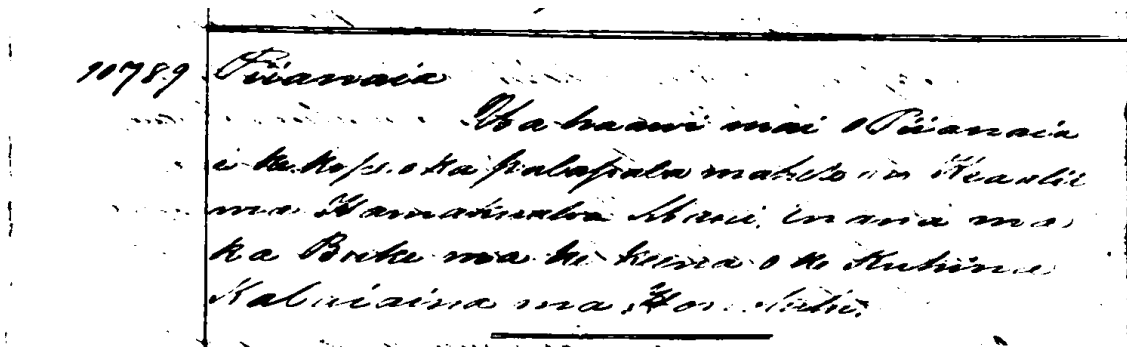 10789 Piianaia
Ua haawi mai o Piianaia
i ke kope o ka palapala mahele Kealii
ma Hamakualoa Maui. inana ma
ka Buke ma ke keena o ke Kuhina
Kalaiaina ma Honolulu.